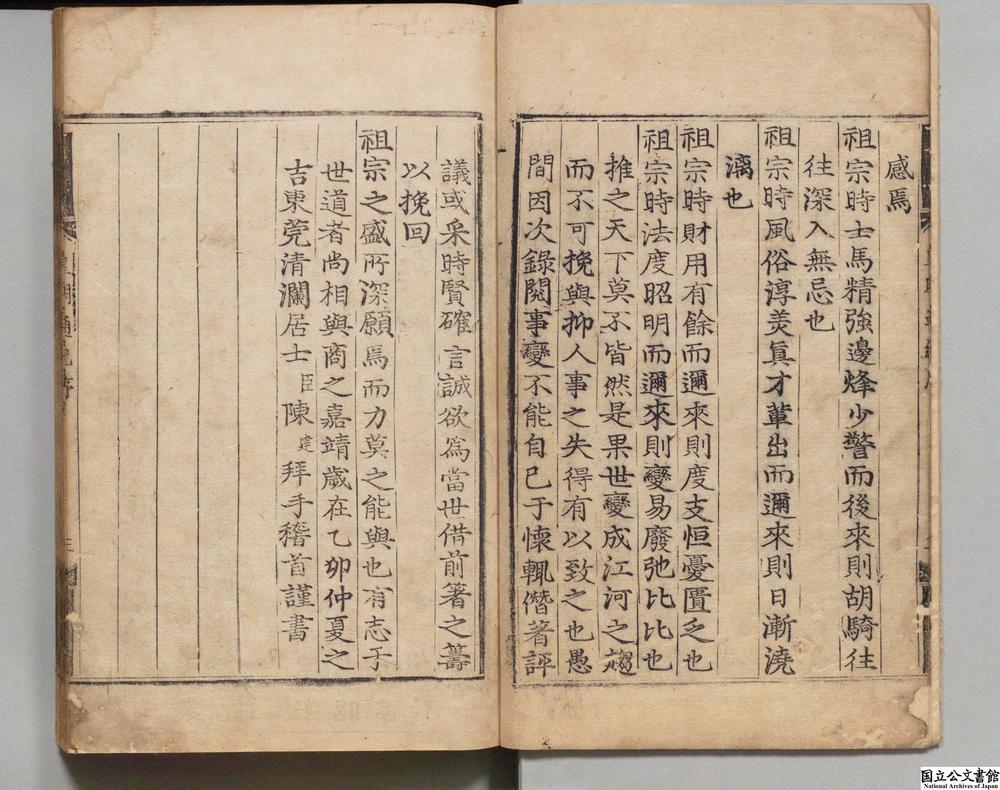 感焉
祖宗時士馬精強邊烽少警而後來則胡騎往
往深入無忌也
祖宗時風俗淳美眞才輩出而邇來則日漸澆
漓也
祖宗時財用有餘而邇來則度支恒憂匱乏也
祖宗時法度昭明而邇來則變易廢弛比比也
推之天下莫不皆然是果世變成江河之趨
而不可挽與抑人事之失得有以致之也愚
間因次錄閱事變不能自已于懷輒僭著評
議或采時賢確言誠欲為當世借前箸之籌
以挽回
祖宗之盛所深願焉而力莫之能與也有志于
世道者尚相與商之嘉靖歲在乙卯仲夏之
吉東莞清瀾居士臣陳建拜手稽首謹書
国立公文書館
National Archives of Japan